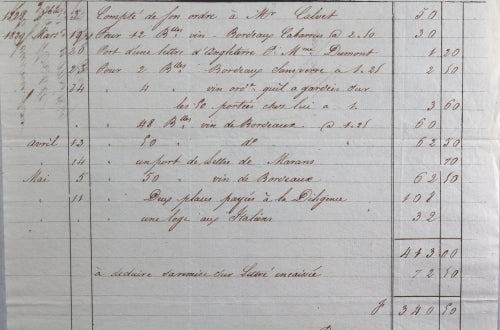 Compté de son ordre à Mr Calvet 50
1829 Mars 19 Pour 12 Blles vin Bordeaux Cabarrus @ 2.50 30
26 Port d'une lettre d'Angleterre Pr Mme Dumont 1 20
23 Pour 2 Blles Bordeaux Sauterne a 1.25 2 50
24 " 4 " vin ordre qu'il a gardées sur
les 50 portées chez lui à 1. 3 60
48 Blles vin de Bordeaux @ 1.25 60
avril 13 " 50 do 62 50
14 " un port de lettre de Marans 70
Mai 5 " 50 vin de Bordeaux 62 50
11 " Deux places payées à la Diligence 108
une loge aux Italiens 32
413 00
à déduire sa remise sur encaissée 72 50
F 340 50